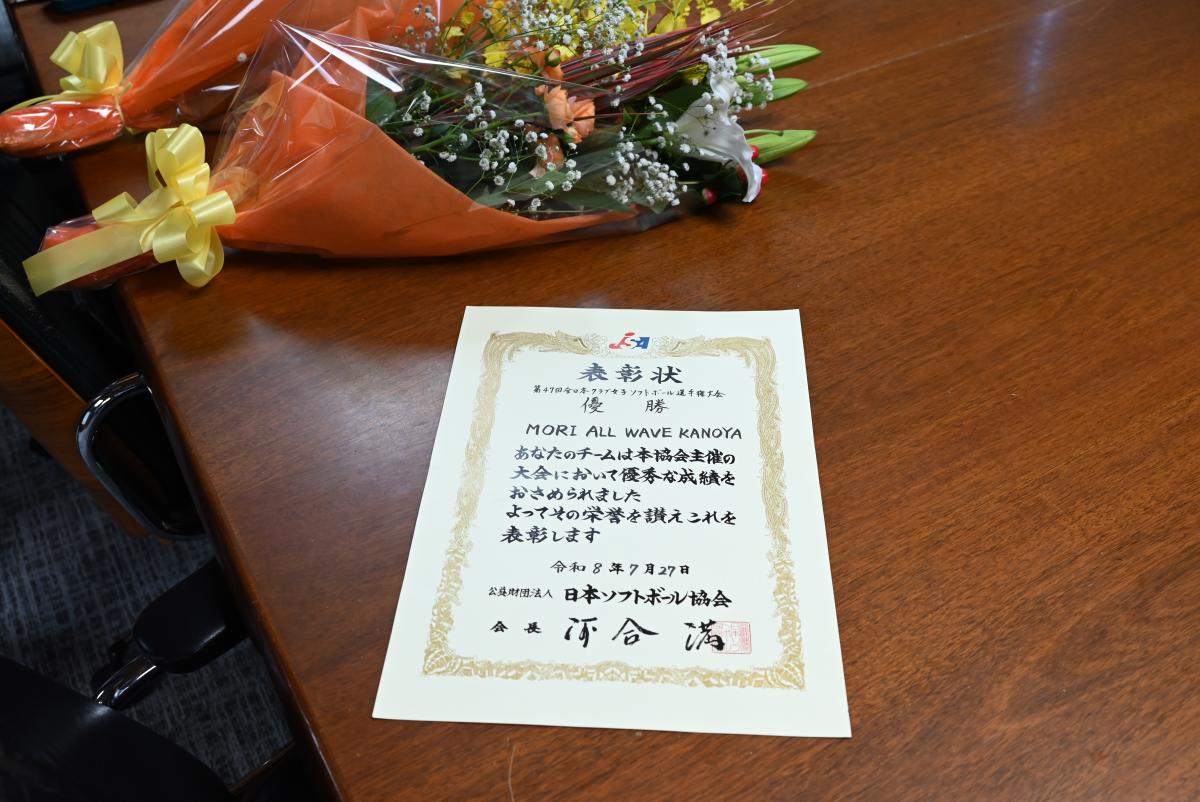 JSA
表彰状
第47回全日本クラブ女子ソフトボール選手権大会
優 勝
MORI ALL WAVE KANOYA
あなたのチームは本協会主催の
大会において優秀な成績を
おさめられました
よってその栄誉を讃えこれを
表彰します
令和8年7月27日
公益財団法人 日本ソフトボール協会
会長 河合 満